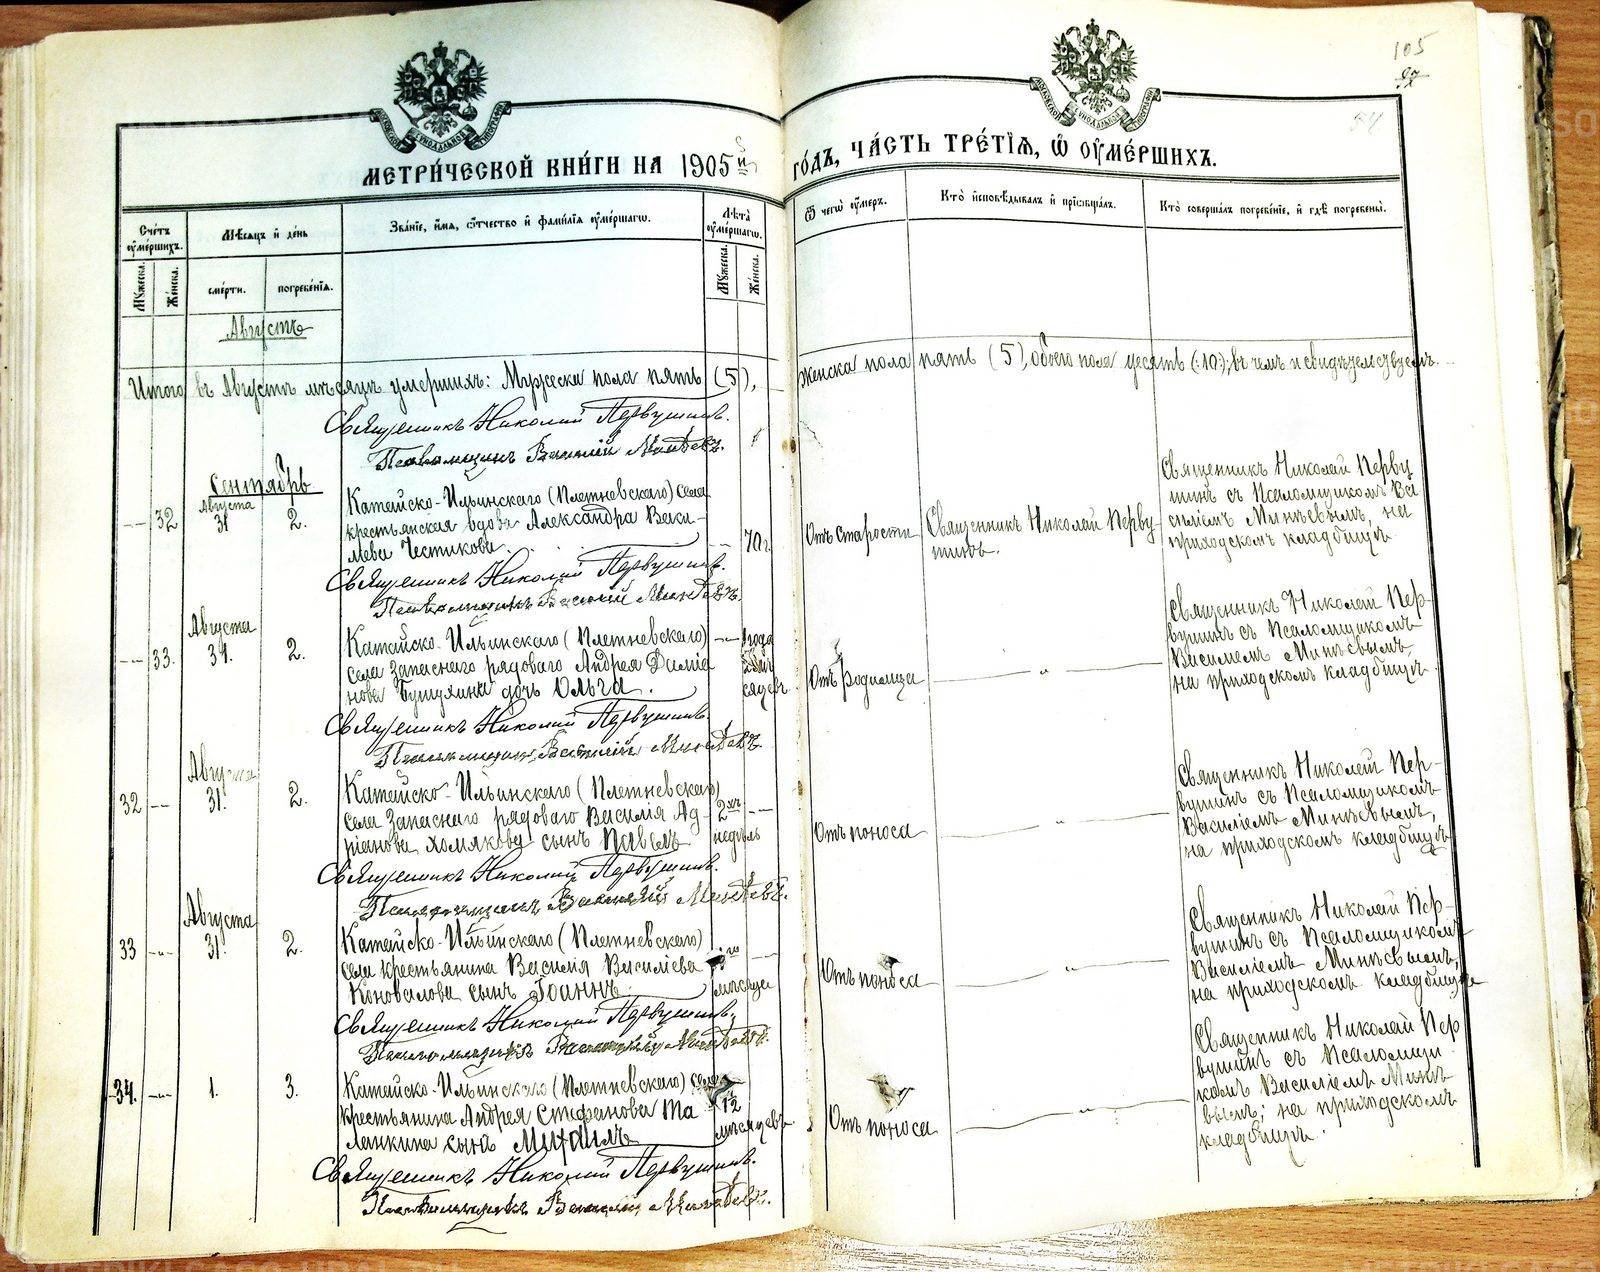 105
54
МОСКОВСКОЙ СѴНОДАЛЬНОЙ ТИПОГРАФІИ
МОСКОВСКОЙ СѴНОДАЛЬНОЙ ТИПОГРАФІИ
МЕТРИ́ЧЕСКОЙ КНИ́ГИ НА 1905й ГО́ДЪ, ЧА́СТЬ ТРЕ́ТІѦ, Ѿ ОУМЕ́РШИХЪ.
Сче́тъ оумершихъ.
Мѣсяцъ и де́нь
Зва́ніе, и́мя, ѻ́тчество и фами́лія оуме́ршагѡ.
Лѣ́та оуме́ршагѡ.
Ѿ чегѡ̀ оу́меръ.
Кто̀ исповѣ́дывалъ и пріобща́лъ.
Кто̀ соверша́лъ погребе́ніе, и гдѣ̀ погребены̀.
Му́жеска.
Же́нска.
сме́рти.
погребе́нія.
Му́жеска.
Же́нска.
Августъ
Итого въ Августѣ мѣсяцѣ умершихъ: Мужеска пола пять (5), женска пола пять (5), обоего пола десять (:10:); въ чемъ и свидѣтельствуемъ.
Священникъ Николай Первушинъ.
Псаломщикъ Василій Минѣевъ.
Сентябрь
32
Августа
31
2.
Катайско-Ильинскаго (Плетневскаго) села
крестьянская вдова Александра Васи-
льева Чистикова.
70 г.
Отъ старости
Священникъ Николай Перву-
шинъ.
Священникъ Николай Перву
шинъ съ Псаломщикомъ Ва
силіемъ Минѣевымъ, на
приходскомъ кладбищѣ
Священникъ Николай Первушинъ.
Псаломщикъ Василій Минѣевъ.
33.
Августа
31.
2.
Катайско-Ильинскаго (Плетневскаго)
села запаснаго рядоваго Андрея Даміа
нова дочь Ольга.
1 года
Отъ родимца
"
Священникъ Николай Пер-
вушинъ съ Псаломщикомъ
Василіемъ Минѣевымъ,
на приходскомъ кладбищѣ
Священникъ Николай Первушинъ.
Псаломщикъ Василій Минѣевъ.
32
Августа
31.
2.
Катайско-Ильинскаго (Плетневскаго)
села запаснаго рядоваго Василія Ад-
ріанова Хомякова сынъ Павелъ
2хъ
недѣль
Отъ поноса
"
Священникъ Николай Пер-
вушинъ съ Псаломщикомъ
Василіемъ Минѣевымъ,
на приходскомъ кладбищѣ
Священникъ Николай Первушинъ.
Псаломщикъ Василій Минѣевъ.
33
Августа
31.
2.
Катайско-Ильинскаго (Плетневскаго)
села крестьянина Василія Василіева
Коновалова сынъ Іоаннъ
мѣсяца
Отъ поноса
"
Священникъ Николай Пер-
вушинъ съ Псаломщикомъ
Василіемъ Минѣевымъ,
на приходскомъ кладбищѣ
Священникъ Николай Первушинъ.
Псаломщикъ Василій Минѣевъ.
34.
1.
3.
Катайско-Ильинскаго (Плетневскаго) села
крестьянина Андрея Стефанова Та
ланкина сынъ Михаилъ
мѣсяцевъ
Отъ поноса
"
Священникъ Николай Пер
вушинъ съ Псаломщи
комъ Василіемъ Минѣе
вымъ; на приходскомъ
кладбищѣ.
Священникъ Николай Первушинъ.
Псаломщикъ Василій Минѣевъ.